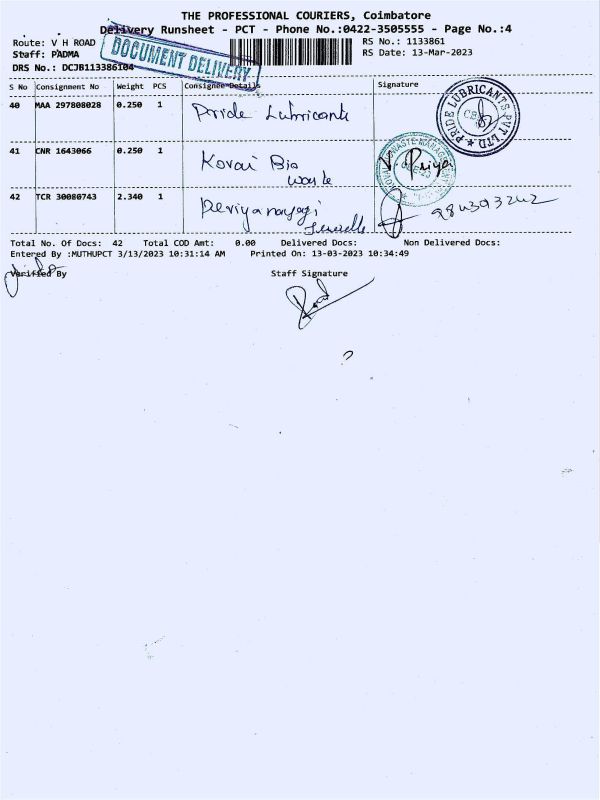 THE PROFESSIONAL COURIERS, Coimbatore
Delivery Runsheet - PCT - Phone No.:0422-3505555 - Page No.:4
Route: V H ROAD
RS No.: 1133861
Staff: PADMA
RS Date: 13-Mar-2023
DRS No.: DCJB113386104
DOCUMENT DELIVERY
S No Consignment No Weight PCS Consignee Details Signature
40 MAA 297808028 0.250 1 Pride Lubricants
PRIDE LUBRICANTS PVT LTD
41 CNR 1643066 0.250 1 Kovai Bio
Waste
V. Priya
42 TCR 30080743 2.340 1 Periyanayagi
Total No. Of Docs: 42 Total COD Amt: 0.00 Delivered Docs: Non Delivered Docs:
Entered By :MUTHUPCT 3/13/2023 10:31:14 AM Printed On: 13-03-2023 10:34:49
Verified By Staff Signature